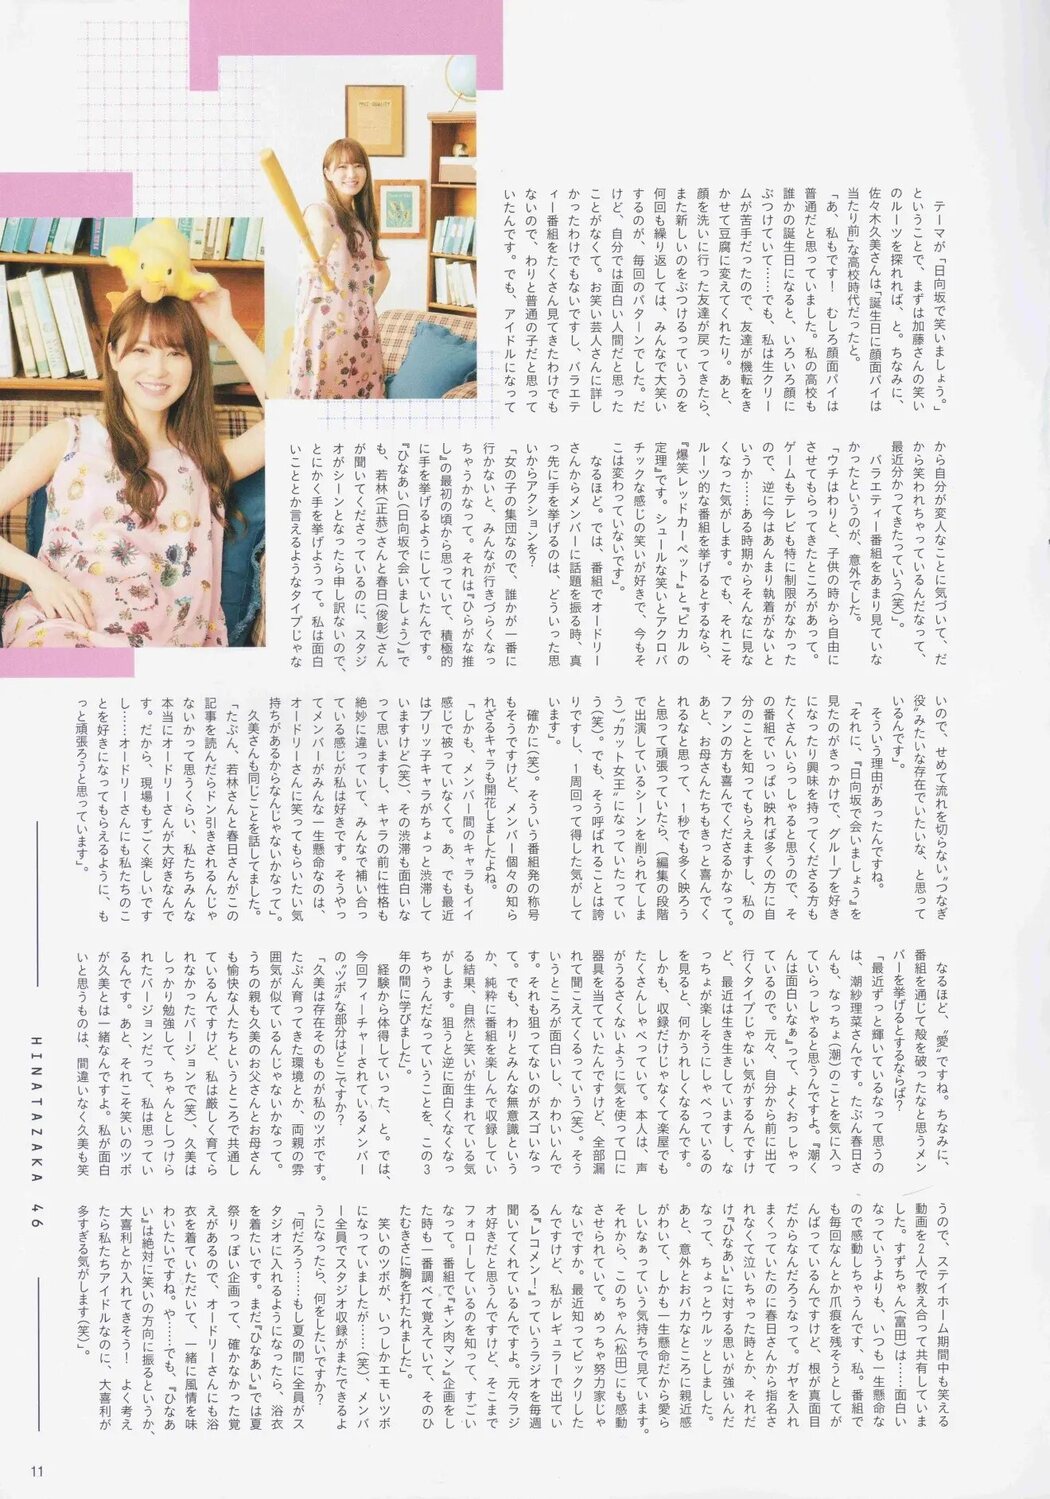 テーマが「日向坂で笑いましょう。」
ということで、まずは加藤さんの笑い
のルーツを探れれば、と。ちなみに、
佐々木久美さんは「誕生日に顔面パイは
当たり前」な高校時代だったと。
「あ、私もです！　むしろ顔面パイは
普通だと思っていました。私の高校も
誰かの誕生日になると、いろいろ顔に
ぶつけていて……でも、私は生クリー
ムが苦手だったので、友達が機転をき
かせて豆腐に変えてくれたり。あと、
顔を洗いに行った友達が戻ってきたら、
また新しいのをぶつけるっていうのを
何回も繰り返しては、みんなで大笑い
するのが、毎回のパターンでした。だ
けど、自分では面白い人間だと思った
ことがなくて。お笑い芸人さんに詳し
かったわけでもないですし、バラエテ
ィー番組をたくさん見てきたわけでも
ないので、わりと普通の子だと思って
いたんです。でも、アイドルになって
から自分が変人なことに気づいて、だ
から笑われちゃっているんだなって、
最近分かってきたっていう（笑）」。
バラエティー番組をあまり見ていな
かったというのが、意外でした。
「ウチはわりと、子供の時から自由に
させてもらってきたところがあって。
ゲームもテレビも特に制限がなかった
ので、逆に今はあんまり執着がないと
いうか……ある時期からそんなに見な
くなった気がします。でも、それこそ
ルーツ的な番組を挙げるとするなら、
『爆笑レッドカーペット』と『ピカルの
定理』です。シュールな笑いとアクロバ
チックな感じの笑いが好きで、今もそ
こは変わっていないです」。
なるほど。では、番組でオードリー
さんからメンバーに話題を振る時、真
っ先に手を挙げるのは、どういった思
いからアクションを？
「女の子の集団なので、誰かが一番に
行かないと、みんなが行きづらくなっ
ちゃうかなって。それは『ひらがな推
し』の最初の頃から思っていて、積極的
に手を挙げるようにしていたんです。
『ひなあい（日向坂で会いましょう）』で
も、若林（正恭）さんと春日（俊彰）さん
が聞いてくださっているのに、スタジ
オがシーンとなったら申し訳ないので、
とにかく手を挙げようって。私は面白
いこととか言えるようなタイプじゃな
いので、せめて流れを切らない“つなぎ
役”みたいな存在でいたいな、と思って
いるんです」。
そういう理由があったんですね。
「それに、『日向坂で会いましょう』を
見たのがきっかけで、グループを好き
になったり興味を持ってくださる方も
たくさんいらっしゃると思うので、そ
の番組でいっぱい映れば多くの方に自
分のことを知ってもらえますし、私の
ファンの方も喜んでくださるかなって。
あと、お母さんたちもきっと喜んでく
れるなと思って、1秒でも多く映ろう
と思って頑張っていたら、（編集の段階
で出演しているシーンを削られてしま
う）“カット女王”になっていたってい
う（笑）。でも、そう呼ばれることは誇
りですし、1周回って得した気がして
います」。
確かに（笑）。そういう番組発の称号
もそうですけど、メンバー個々の知ら
れざるキャラも開花しましたよね。
「しかも、メンバー間のキャラもイイ
感じで被っていなくて。あ、でも最近
はブリッ子キャラがちょっと渋滞して
いますけど（笑）、その渋滞も面白いな
って思いますし、キャラの前に性格も
絶妙に違っていて、みんなで補い合っ
ている感じが私は好きです。そうやっ
てメンバーがみんな一生懸命なのは、
オードリーさんに笑ってもらいたい気
持ちがあるからなんじゃないかなって」。
久美さんも同じことを話してました。
「たぶん、若林さんと春日さんがこの
記事を読んだらドン引きされるんじゃ
ないかって思うくらい、私たちみんな
本当にオードリーさんが大好きなんで
す。だから、現場もすごく楽しいです
し……オードリーさんにも私たちのこ
とを好きになってもらえるように、も
っと頑張ろうと思っています」。
なるほど、“愛”ですね。ちなみに、
番組を通じて殻を破ったなと思うメン
バーを挙げるとするならば？
「最近ずっと輝いているなって思うの
は、潮紗理菜さんです。たぶん春日さ
んも、なっちょ（潮）のことを気に入っ
ていらっしゃると思うんですよ。『潮く
んは面白いなぁ』って、よくおっしゃっ
ているので。元々、自分から前に出て
行くタイプじゃない気がするんですけ
ど、最近は生き生きしていますし、な
っちょが楽しそうにしゃべっているの
を見ると、何かうれしくなるんです。
しかも、収録だけじゃなくて楽屋でも
たくさんしゃべっていて。本人は、声
がうるさくないように気を使って口に
器具を当てていたんですけど、全部漏
れて聞こえてくるっていう（笑）。そう
いうところが面白いし、かわいいんで
す。それも狙ってないのがスゴいなっ
て。でも、わりとみんな無意識という
か、純粋に番組を楽しんで収録してい
る結果、自然と笑いが生まれている気
がします。狙うと逆に面白くなくなっ
ちゃうんだなっていうことを、この3
年の間に学びました」。
経験から体得していった、と。では、
今回フィーチャーされているメンバー
の“ツボ”な部分はどこですか？
「久美は存在そのものが私のツボです。
たぶん育ってきた環境とか、両親の雰
囲気が似ているんじゃないかなって。
うちの親も久美のお父さんとお母さん
も愉快な人たちというところで共通し
ているんですけど、私は厳しく育てら
れなかったバージョンで（笑）、久美は
しっかり勉強して、ちゃんとしつけら
れたバージョンだって、私は思ってい
るんです。あと、それこそ笑いのツボ
が久美とは一緒なんですよ。私が面白
いと思うものは、間違いなく久美も笑
うので、ステイホーム期間中も笑える
動画を2人で教え合って共有していま
した。すずちゃん（富田）は……面白い
なっていうよりも、いつも一生懸命な
ので感動しちゃうんです、私。番組で
も毎回なんとか爪痕を残そうとしてが
んばっているんですけど、根が真面目
だからなんだろうなって。ガヤを入れ
まくっていたのに春日さんから指名さ
れなくて泣いちゃった時とか、それだ
け『ひなあい』に対する思いが強いんだ
なって、ちょっとウルッとしました。
あと、意外とおバカなところに親近感
がわいて、しかも一生懸命だから愛ら
しいなぁっていう気持ちで見ています。
それから、このちゃん（松田）にも感動
させられていて。めっちゃ努力家じゃ
ないですか。最近知ってビックリした
んですけど、私がレギュラーで出てい
る『レコメン！』っていうラジオを毎週
聞いてくれているんですよ。元々ラジ
オ好きだと思うんですけど、そこまで
フォローしているのを知って、すごい
なって。番組で『キン肉マン』企画をし
た時も一番調べて覚えていて、そのひ
たむきさに胸を打たれました」。
笑いのツボが、いつしかエモいツボ
になっていましたが……（笑）、メンバ
ー全員でスタジオ収録がまたできるよ
うになったら、何をしたいですか？
「何だろう……もし夏の間に全員がス
タジオに入れるようになったら、浴衣
を着たいです。まだ『ひなあい』では夏
祭りっぽい企画って、確かなかった覚
えがあるので、オードリーさんにも浴
衣を着ていただいて、一緒に風情を味
わいたいですね。や……でも、『ひなあ
い』は絶対に笑いの方向に振るというか、
大喜利とか入れてきそう！　よく考え
たら私たちアイドルなのに、大喜利が
多すぎる気がします（笑）」。
HINATAZAKA 46
11